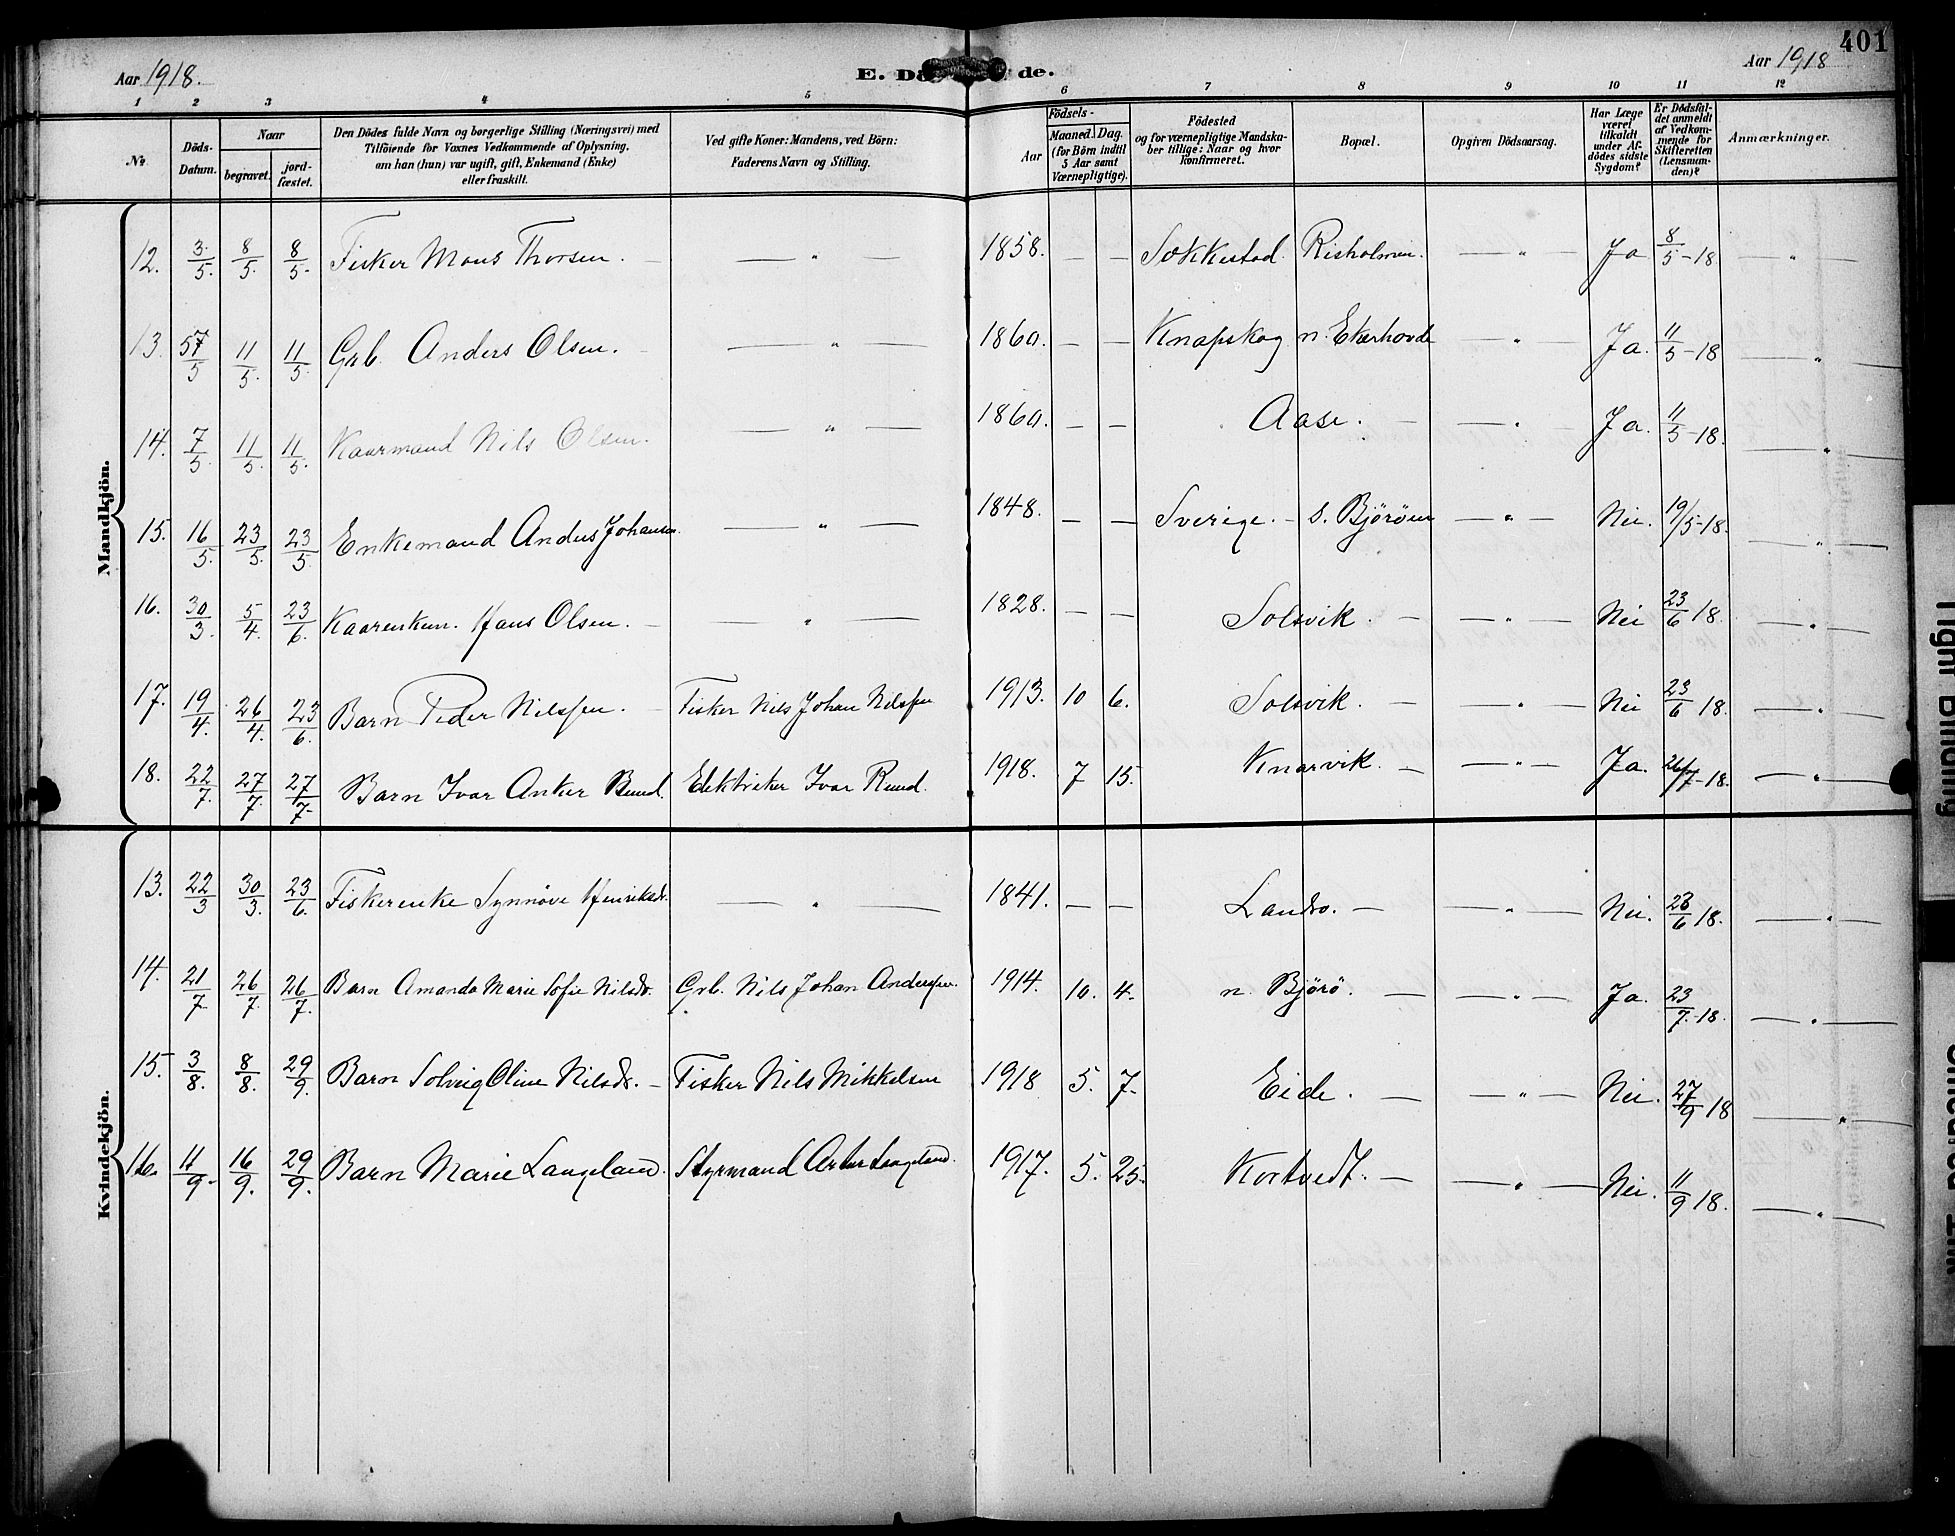 401
Aar 1918.
E. Dö de.
Aar 1918
1 2 3 4 5 6 7 8 9 10 11 12
No.
Döds-Datum.
Naar
begravet.
jordfæstet.
Den Dödes fulde Navn og borgerlige Stilling (Næringsvei) med
Tilföiende for Voxnes Vedkommende af Oplysning,
om han (hun) var ugift, gift, Enkemand (Enke)
eller fraskilt.
Ved gifte Koner: Mandens, ved Börn:
Faderens Navn og Stilling.
Födsels-
Aar
Maaned. Dag.
(for Börn indtil
5 Aar samt
Værnepligtige).
Födested
og for værnepligtige Mandska-
ber tillige: Naar og hvor
konfirmeret.
Bopæl.
Opgiven Dödsaarsag.
Har Læge
været
tilkaldt
under Af-
dödes sidste
Sygdom?
Er Dödsfal-
det anmeldt
af Vedkom-
mende for
Skifteretten
(Lensman-
den)?
Anmærkninger.
Mandkjön.
12. 3/5. 8/5. 8/5. Fisker Mons Thorsen. — " — 1858. — — Sækkestad. Risholmen. — " — Ja 8/5-18 — " —
13. 7/5 11/5. 11/5. Grb. Anders Olsen. — " — 1860. — — Knapskog n. Ekerhovde — " — Ja. 11/5-18 — " —
14. 7/5. 11/5. 11/5. Kaarmand Nils Olsen. — " — 1860. — — Aase. — " — Ja. 11/5-18. — " —
15. 16/5. 23/5. 23/5. Enkemand Anders Johansen. — " — 1848. — — Sverige. - s. Björöen — " — Nei. 19/5-18. — " —
16. 30/3. 5/4. 23/6. Kaarenkem. Hans Olsen. — " — 1828. — — Solsvik. — " — Nei 23/6 18. — " —
17. 19/4. 26/4. 23/6. Barn Peder Nilssen. Fisker Nils Johan Nilssen 1913. 10 6. Solsvik. — " — Nei 23/6 18. — " —
18. 22/7. 27/7. 27/7. Barn Ivar Anker Ruud. Elektriker Ivar Ruud. 1918. 7 15. Knarvik. — " — Ja. 26/7-18. — " —
Kvindekjön.
13. 22/3 30/3. 23/6. Fiskerenke Synnöve Henriksdr. — " — 1841. — — Landro. — " — Nei. 23/6 18. — " —
14. 21/7 26/7. 26/7. Barn Amanda Marie Sofie Nilsdr. Grb. Nils Johan Anderssen. 1914. 10. 4. n. Björö. — " — Ja. 23/7-18. — " —
15. 3/8. 8/8. 29/9. Barn Solveig Oline Nilsdr. — Fisker Nils Mikkelsen 1918 5. 7. Eide. — " — Nei. 27/9 18 — " —
16. 11/9. 16/9. 29/9. Barn Marie Langeland. Styrmand Langeland. 1917. 5. 25. Kortvedt. — " — Nei. 11/9 18. — " —
Tight Binding